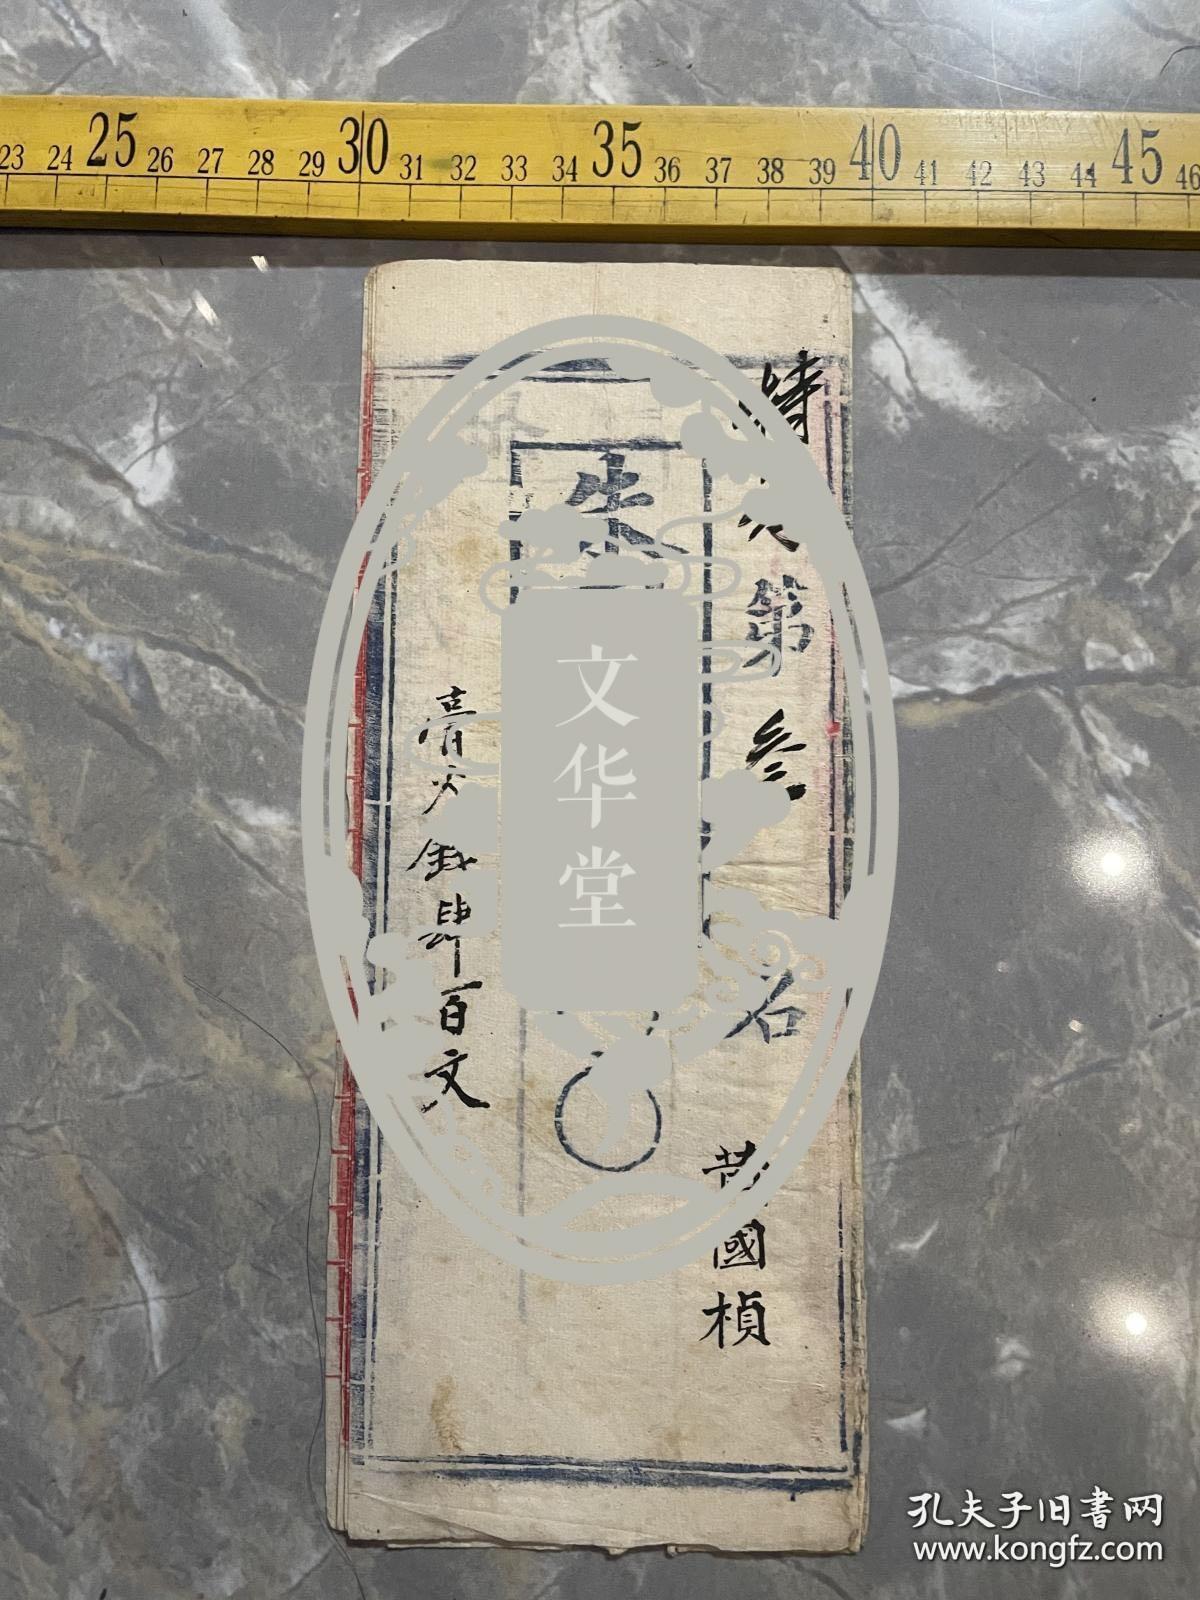 23 24 25 26 27 28 29 30 31 32 33 34 35 36 37 38 39 40 41 42 43 44 45 46
特 第叁名 黄國楨
膏火錢肆百文
文华堂
孔夫子旧書网
www.kongfz.com